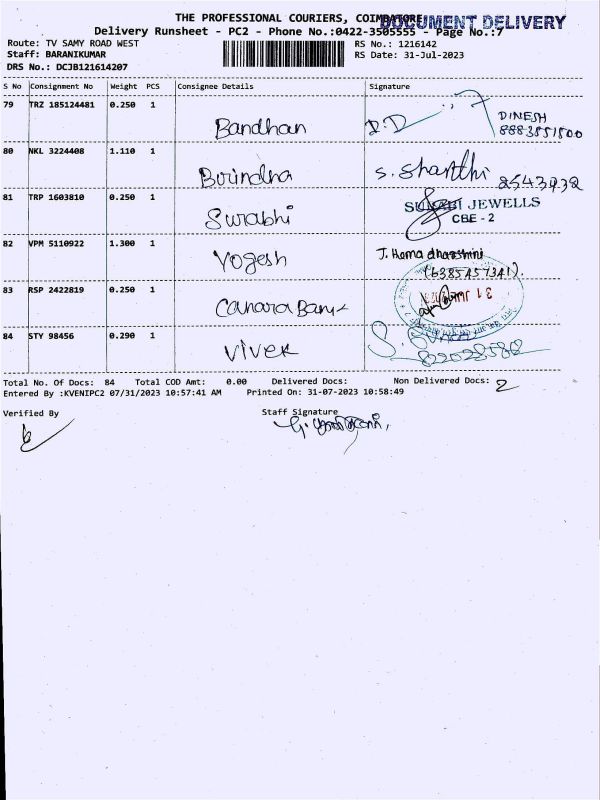 THE PROFESSIONAL COURIERS, COIMBATORE
DOCUMENT DELIVERY
Delivery Runsheet - PC2 - Phone No.:0422-3505555 - Page No.:7
Route: TV SAMY ROAD WEST
RS No.: 1216142
Staff: BARANIKUMAR
RS Date: 31-Jul-2023
DRS No.: DCJB121614207
S No Consignment No Weight PCS Consignee Details Signature
79 TRZ 185124481 0.250 1
Bandhan
DINESH
80 NKL 3224408 1.110 1
Birindha S. Shanthi
81 TRP 1603810 0.250 1
Swabhi
JEWELLS
CBE - 2
82 VPM 5110922 1.300 1
Yogesh
J. Hema dharshini
(6385457341).
83 RSP 2422819 0.250 1
Canara Bank
84 STY 98456 0.290 1
Vivek
Total No. Of Docs: 84 Total COD Amt: 0.00 Delivered Docs: Non Delivered Docs: 2
Entered By :KVENIPC2 07/31/2023 10:57:41 AM Printed On: 31-07-2023 10:58:49
Verified By Staff Signature